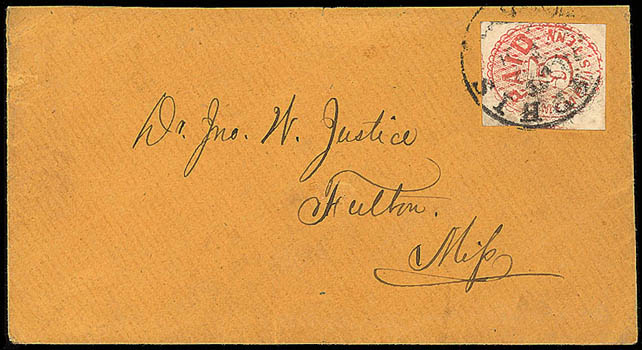 PAID
TENN
Dr. Jno. W. Justice
Fulton.
Miſs